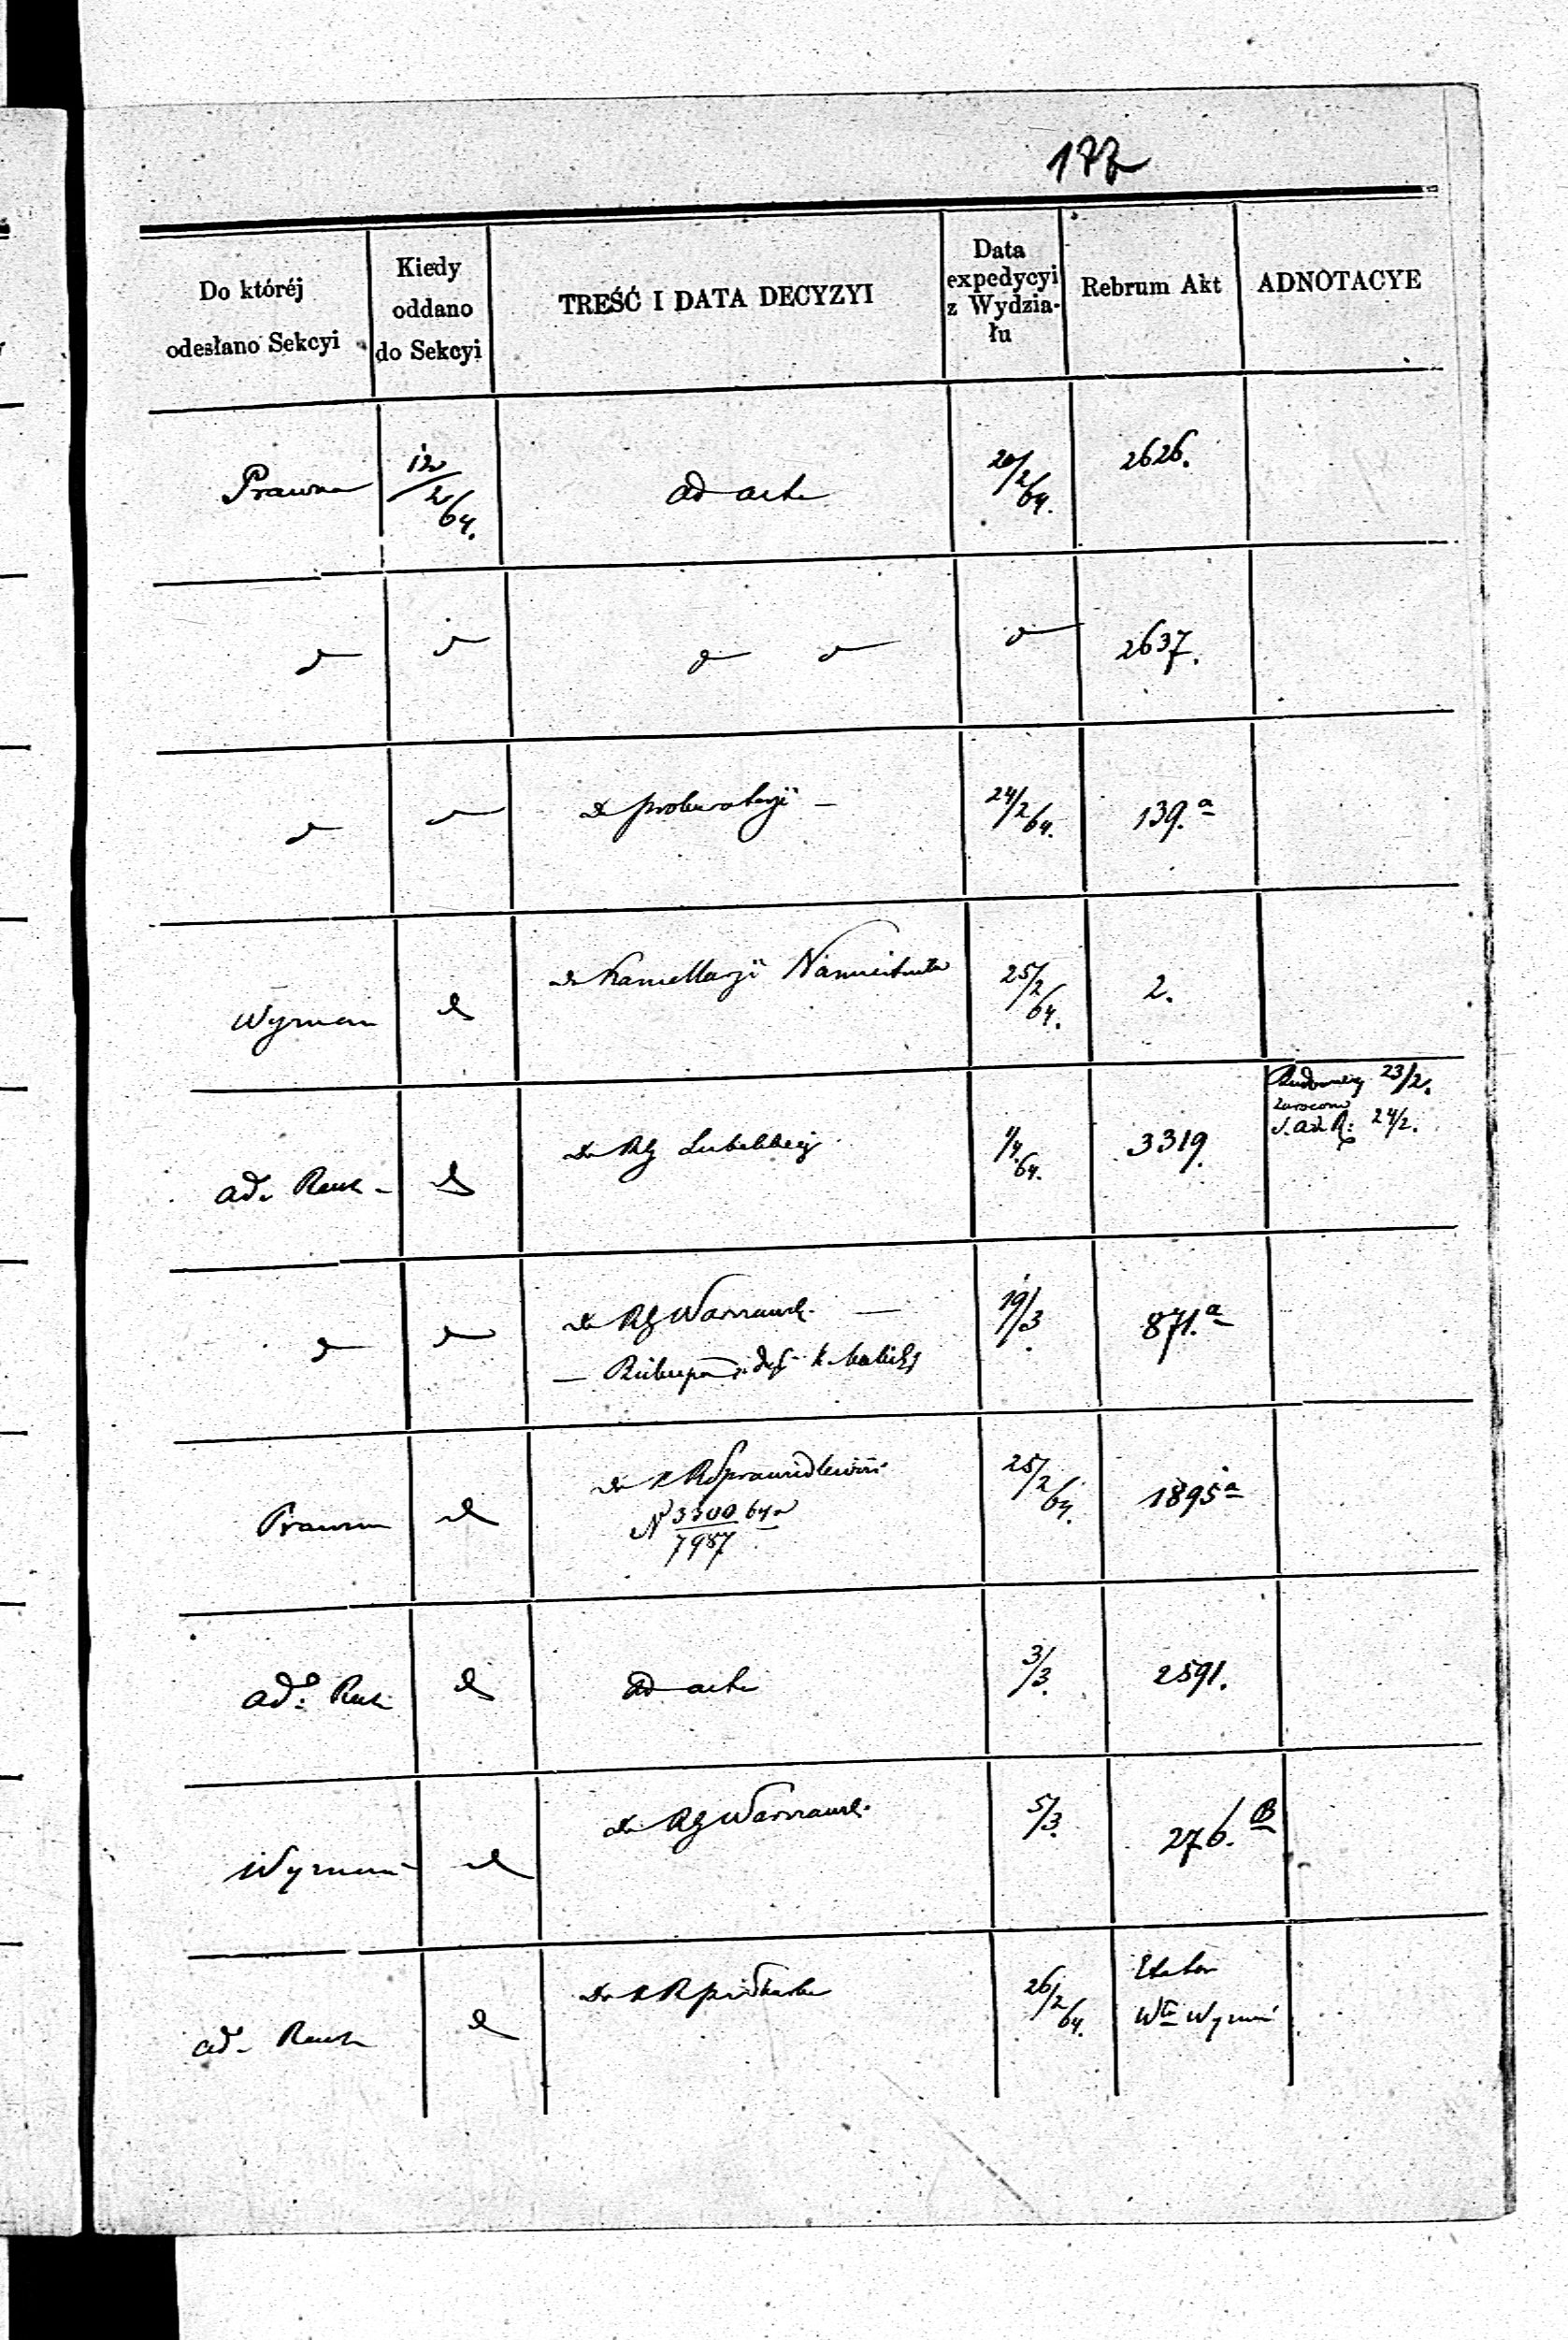 177
Do któréj odesłano Sekcyi
Kiedy oddano do Sekcyi
TREŚĆ I DATA DECYZYI
Data expedycyi z Wydzia-łu
Rebrum Akt
ADNOTACYE
Prawna 12/2/64. ad acta 20/2/64. 2626.
2637.
do prokuratoryi — 24/2/64. 139.a
Wyznań do Kancellaryi Namiestnika 25/2/64. 2.
ad. Rach - do RG Lubelskiej 1/4/64. 3319.
23/2.
zwrócono
S. ad. R: 24/2.
do RG Warszawsk. — 19/3. 871.a
Prawna do KRSprawiedliwości 25/2/64. 1895a
N 3300 64 r
7987
ad. Rach ad acta 3/3. 2591.
Wyznań do RG Warszawsk. 5/3. 276.B
ad. Rach do KRpiSkarbu 26/2/64.
Wł Wyznań